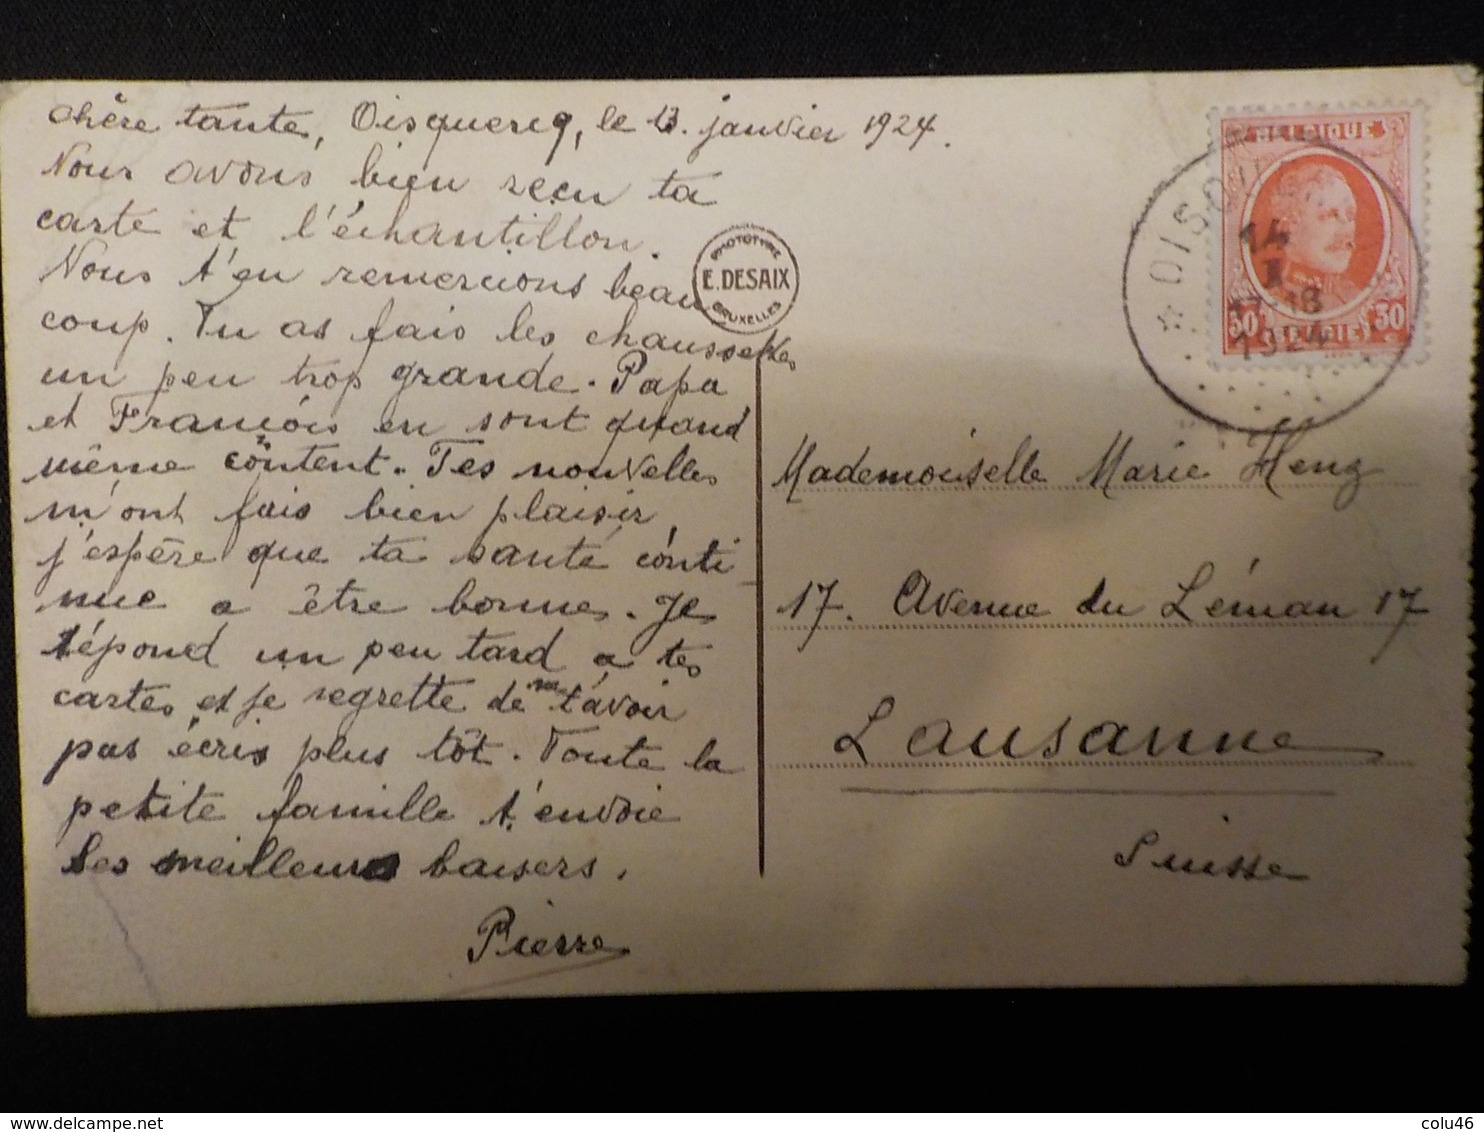 Chère tante, Oisquercq, le 13. janvier 1924.
Nous avons bien reçu ta
carte et l'échantillon.
Nous t'en remercions beau
coup. Tu as fais les chaussettes
un peu trop grande. Papa
et François en sont quand
même content. Tes nouvelles
m'ont fais bien plaisir,
j'espère que ta santé conti-
nue a être bonne. Je
répond un peu tard a tes
cartes et je regrette de t'avoir
pas écris plus tôt. Toute la
petite famille t'envoie
ses meilleurs baisers.
Pierre
PHOTOTYPIE
E. DESAIX
BRUXELLES
BELGIQUE
50 50
BELGIË
* OISQU
14
I
17-18
1924
Mademoiselle Marie Henz
17. Avenue du Léman 17
Lausanne
Suisse
www.delcampe.net
colu46